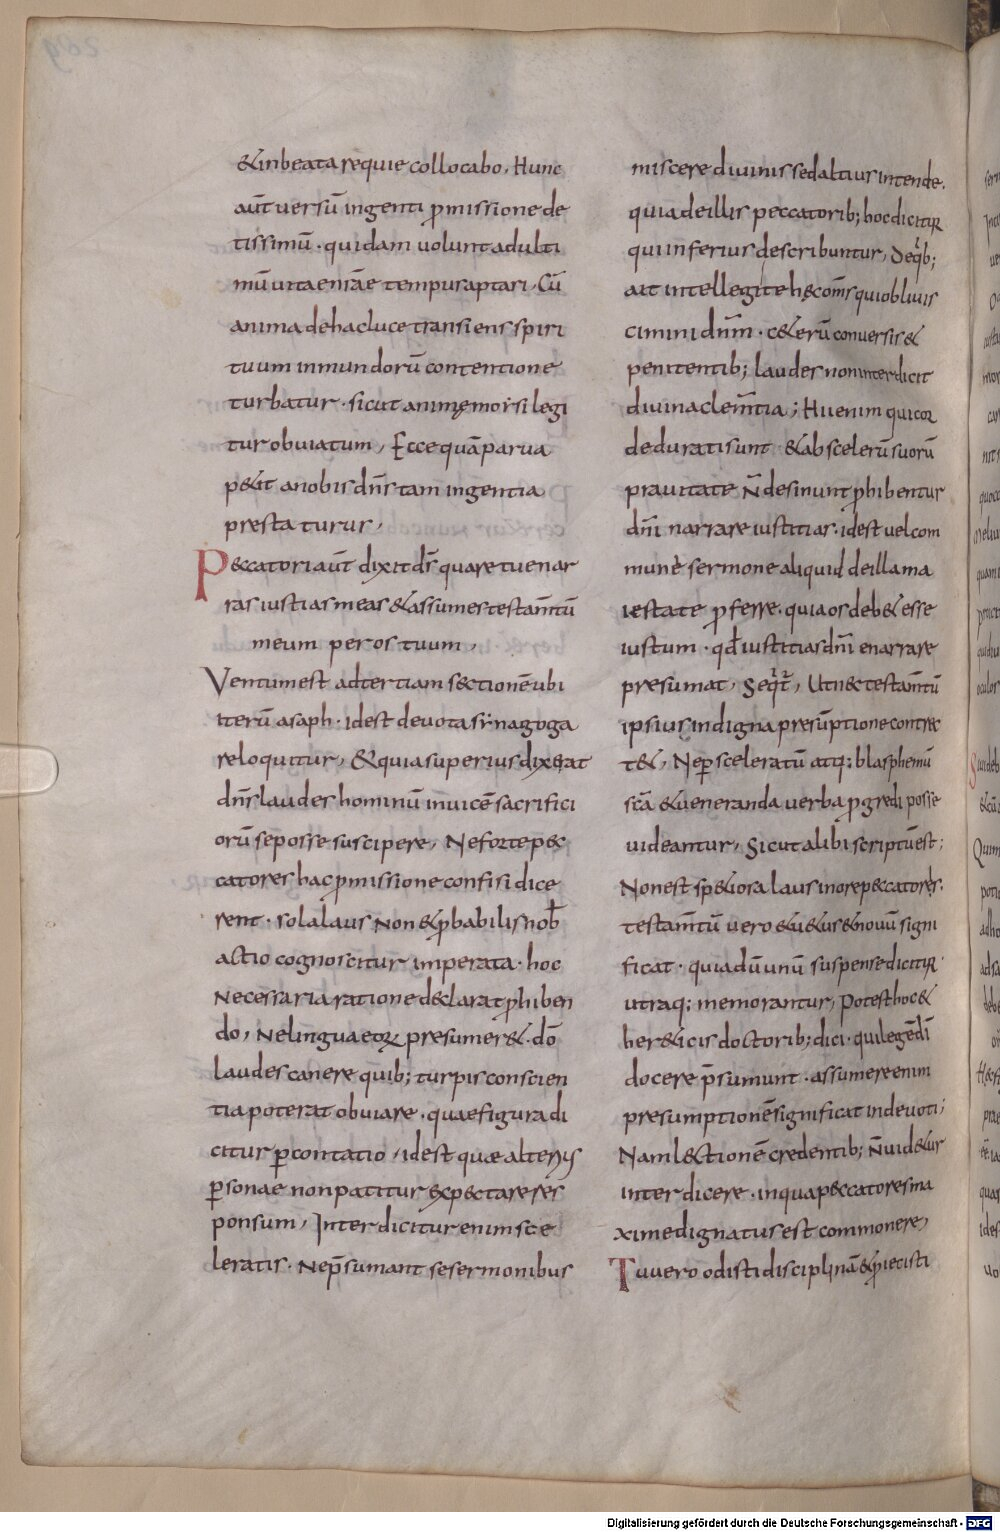 & in beata requie collocabo, Hunc
aūt uersū ingenti p̄missione de
tissimū · quidam uolunt ad ulti
mū uitae nr̄ae tempus aptari, Cū
anima de hac luce transiens spiri
tuum inmundorū contentione
turbatur · sicut animę moẏsi legi
tur obuiatum, Ecce quā parua
p&it a nobis dn̄s tam ingentia
prestaturus,
Peccatori aūt dixit dſ̄ quare tu enar
ras iustias meas & assumes testam̄tū
meum per os tuum,
Ventum est ad tertiam sectionē ubi
iterū asaph · idest deuota sẏnagoga
reloquitur, & quia superius dixerat
dn̄s laudes hominū inuicē sacrifici
orū se posse suscipere, Ne forte pec
catores hac p̄missione confisi dice
rent · sola laus non & p̄babilis nob̄
actio cognoscitur imperata · hoc
Necessaria ratione declarat p̄hiben
do, Ne lingua eoꝝ presumer& · dō
laudes canere quib; turpis conscien
tia poterat obuiare, quae figura di
citur p̄contatio, idest quae alterius
p̄sonae non patitur expectare res
ponsum, Interdicitur enim sce
leratis · Ne p̄sumant se sermonibus
miscere diuinis sed altius intende ·
quia de illis peccatorib; hoc dicitur
qui inferius describuntur, De q̄b;
ait intellegite hęc om̄s qui obliuis
cimini dn̄m · c&erū conuersis &
penitentib; laudes non interdicit
diuina clem̄tia; Hi uenim qui cor
de durati sunt · & ab scelerū suorū
prauitate n̄ desinunt p̄hibentur
dn̄i narrare iustitias · idest uel com
mune sermone aliquid de illa ma
iestate p̄ferre · quia os deb& esse
iustum · qđ iustitias dn̄i enarrare
presumat, Seqt̄, Ut nec testam̄tū
ipsius indigna presūptione contrec
t&, Ne p̄ sceleratū atq; blasphemū
sc̄a & ueneranda uerba p̄gredi posse
uideantur, Sicut alibi scriptū est;
Non est speciosa laus in ore peccatoris ·
testam̄tū uero & u&us & nouū signi
ficat · quia dū unū suspense dicitur
utraq; memorantur, Potest hoc &
her&icis doctorib; dici · qui legē dī
docere p̄sumunt · assumere enim
presumptionē significat indeuoti;
Nam lectionē credentib; n̄ uid&ur
interdicere · in qua peccatores ma
xime dignatus est commonere,
Tu uero odisti disciplinā & p̄iecisti
Digitalisierung gefördert durch die Deutsche Forschungsgemeinschaft - DFG